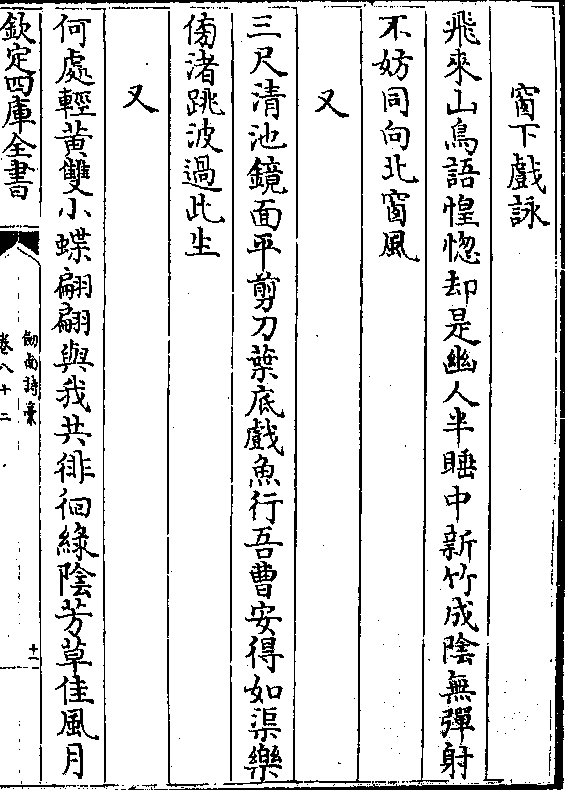 窗下戲詠
飛來山鳥語惺惚却是幽人半睡中新竹成陰無彈射
不妨同向北窗風
又
三尺清池鏡面平剪刀葉底戲魚行吾曹安得如渠樂
傍渚跳波過此生
又
何處輕黃雙小蝶翩翩與我共徘徊綠陰芳草佳風月
欽定四庫全書
劍南詩稾
卷八十二
十一